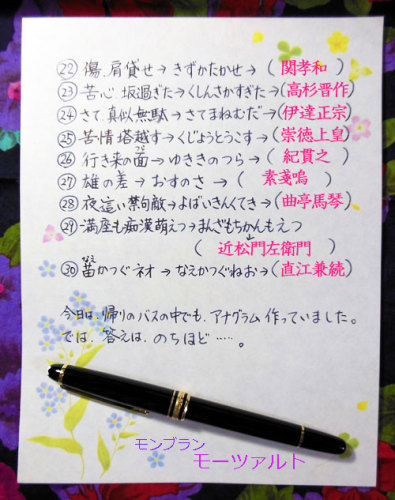 ㉒ 傷、肩貸せ→きずかたかせ→(関孝和)
㉓ 苦心、坂過ぎた→くしんさかすぎた→(高杉晋作)
㉔ さて、真似無駄→さてまねむだ→(伊達正宗)
㉕ 苦情塔越す→くじょうとうこす→(崇徳上皇)
㉖ 行き来の面→ゆききのつら→(紀貫之)
つら
㉗ 雄の差→おすのさ→(素戔嗚)
㉘ 夜這い禁句敵→よばいきんくてき→(曲亭馬琴)
㉙ 満座も痴漢萌えつ→まんざもちかんもえつ
(近松門左衛門)
なえ
㉚ 苗かつぐネオ→なえかつぐねお→(直江兼続)
今日は、帰りのバスの中でも、アナグラム作っていました。
では、答えは、のちほど……。
モンブラン
モーツァルト